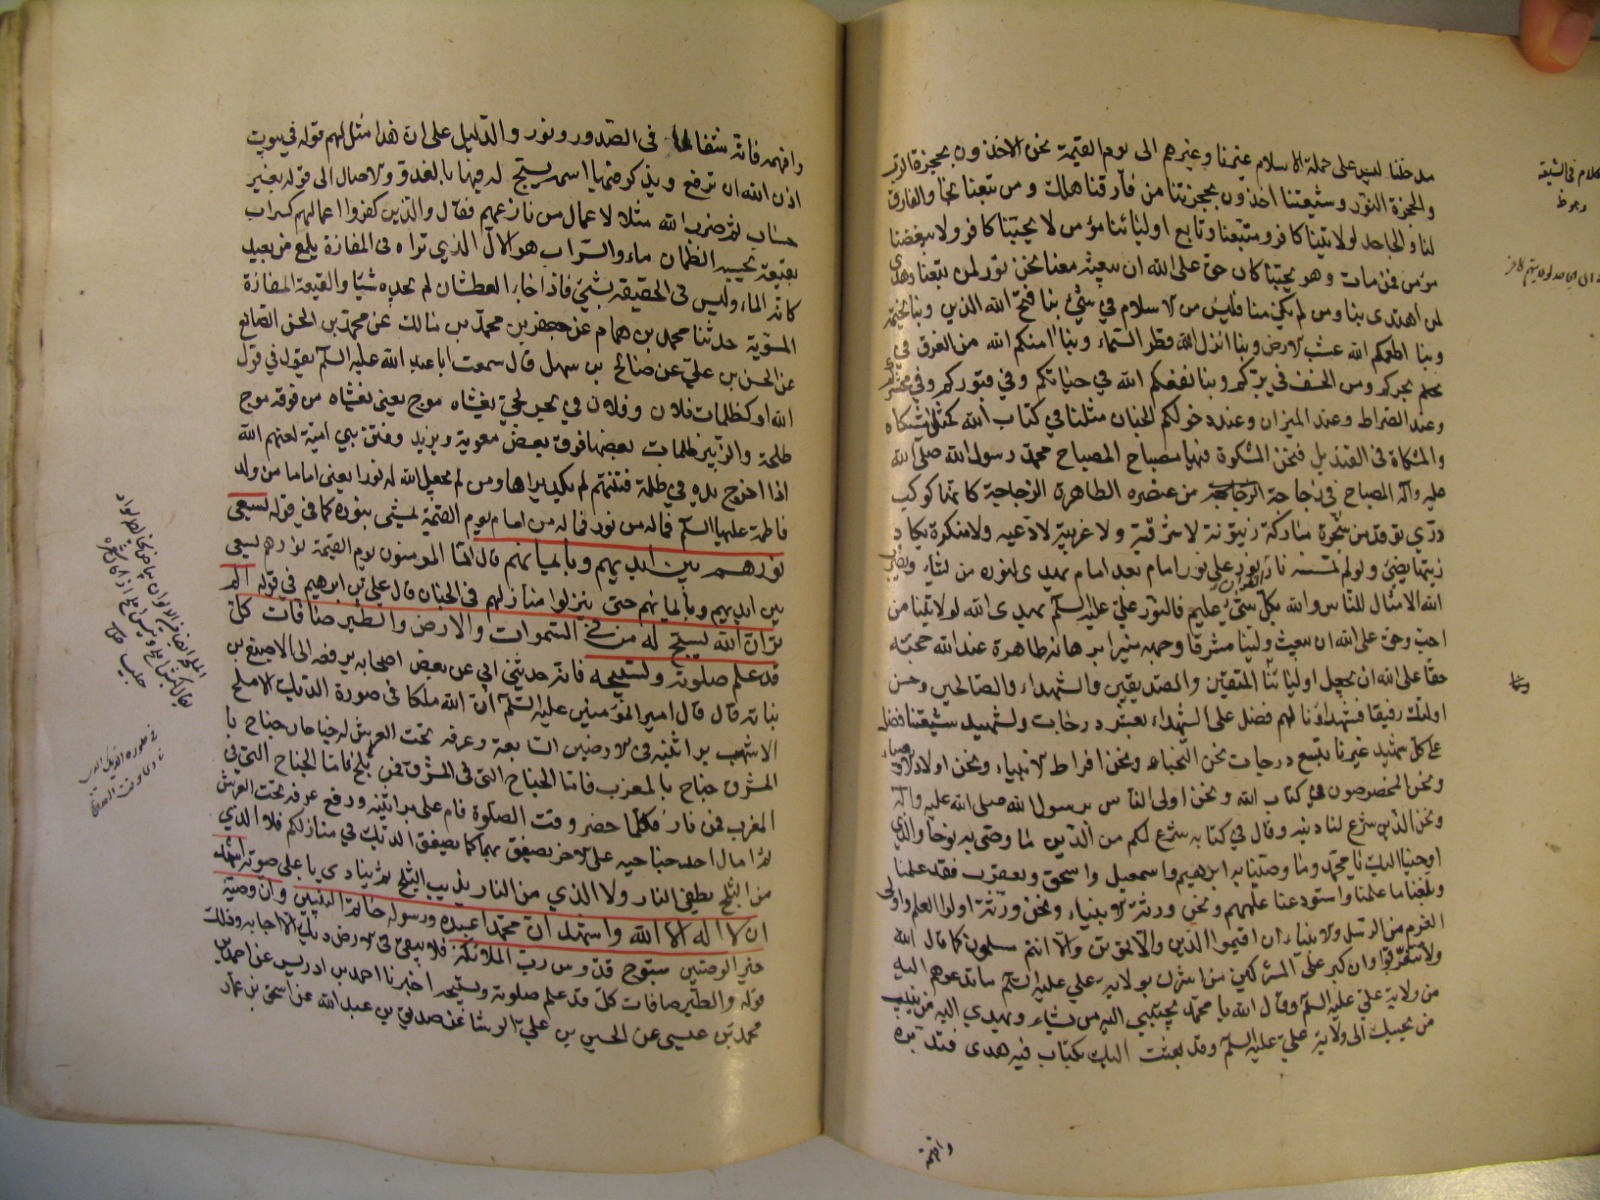 مدخلنا ليس على حملة الاسلام غيرنا وغيرهم الى يوم القيمة نحن الاخذون بحجزة
والحجزة النور وشيعتنا اخذون بحجزتنا من فارقنا هلك ومن تبعنا نجا والمفارق
لنا والجاحد لولايتنا كافر ومتبعنا وتابع اوليائنا مؤمن لا يحبنا كافر ولا يبغضنا
مؤمن فمن مات وهو يحبنا كان حق على الله ان يبعثه معنا نحن نور لمن تبعنا وهدى
لمن اهتدى بنا ومن لم يكن منا فليس من الاسلام في شئ بنا فتح الله الدين وبنا يختمه
وبنا اطعمكم الله عشب الارض وبنا انزل الله قطر السماء وبنا امنكم الله من الغرق في
بحركم ومن الخسف في بركم وبنا نفعكم الله في حياتكم وفي قبوركم وفي محشركم
وعند الصراط وعند الميزان وعند دخولكم الجنان مثلنا في كتاب الله كمثل مشكاة
والمشكاة في القنديل فنحن المشكوة فيها مصباح المصباح محمد رسول الله صلى الله
عليه وآله المصباح في زجاجة الزجاجة من عنصره الطاهرة الزجاجة كانها كوكب
دري توقد من شجرة مباركة زيتونة لا شرقية ولا غربية لا دعية ولا منكرة يكاد
زيتها يضئ ولو لم تمسسه نار نور على نور امام بعد امام يهدى لنوره من يشاء ويضرب
الله الامثال للناس والله بكل شئ عليم فالنور علي عليه السلم يهدى الله لولايتنا من
احب وحق على الله ان يبعث ولينا مشرقا وجهه منيرا برهانه طاهرة عند الله حجته
حقا على الله ان يجعل اوليائنا المتقين والصديقين والشهداء والصالحين وحسن
اولئك رفيقا فشهداؤنا لهم فضل على الشهداء بعشر درجات ولشهيد شيعتنا فضل
على كل شهيد غيرنا بتسع درجات نحن النجباء ونحن افراط الانبياء ونحن اولاد الاوصياء
ونحن المخصوصون في كتاب الله ونحن اولى الناس برسول الله صلى الله عليه وآله
ونحن الذين شرع لنا دينه وقال في كتابه شرع لكم من الدين ما وصى به نوحا والذي
اوحينا اليك يا محمد وما وصينا به ابرهيم واسمعيل واسحق ويعقوب فقد علمنا
وبلغنا ما علمنا واستودعنا علمهم ونحن ورثة الانبياء ونحن ورثة اولوا العلم واولى
العزم من الرسل والانبياء ان اقيموا الدين ولا تموتن والا انتم مسلمون كما قال الله
ولا تتفرقوا وان كبر على المشركين من اشرك بولاية علي عليه السلم ما تدعوهم اليه
من ولاية علي عليه السلم وقال الله يا محمد يجتبي اليه من يشاء ويهدي اليه من ينيب
من يجيبك الى ولاية علي عليه السلم وقد بعثت اليك بكتاب فيه هدى فتدبره
وافهمه
وافهمه فانه شفاء لما في الصدور ونور والدليل على ان هذا مثل لهم قوله في بيوت
اذن الله ان ترفع ويذكر فيها اسمه يسبح له فيها بالغدو والاصال الى قوله بغير
حساب ثم ضرب الله مثلا لاعمال من نازعهم فقال والذين كفروا اعمالهم كسراب
بقيعة يحسبه الظمان ماء والسراب هو الآل الذي تراه في المفازة يلمع من بعيد
كانه الماء وليس في الحقيقة بشئ فاذا جاء العطشان لم يجده شيئا والقيعة المفازة
المستوية حدثنا محمد بن همام عن جعفر بن محمد بن مالك عن محمد بن الحسن الصائغ
عن الحسن بن علي عن صالح بن سهل قال سمعت ابا عبد الله عليه السلم يقول في قول
الله او كظلمات فلان وفلان في بحر لجي يغشاه موج يعنى نعثل من فوقه موج
طلحة والزبير ظلمات بعضها فوق بعض معوية ويزيد وفتن بني امية لعنهم الله
اذا اخرج يده في ظلمة فتنتهم لم يكد يراها ومن لم يجعل الله له نورا يعنى اماما من ولد
فاطمة عليها السلم فما له من نور فما له من امام يوم القيمة يمشي بنوره كما في قوله يسعى
نورهم بين ايديهم وبايمانهم قال انما المومنون يوم القيمة نورهم يسعى
بين ايديهم وبايمانهم حتى ينزلوا منازلهم في الجنان قال علي بن ابرهيم في قوله الم
تر ان الله يسبح له من في السموات والارض والطير صافات كل
قد علم صلوته وتسبيحه فانه حدثني ابي عن بعض اصحابه يرفعه الى الاصبغ بن
نباته قال قال امير المؤمنين عليه السلم ان لله ملكا في صورة الديك الاملح
الاشهب براثنه في الارضين السابعة وعرفه تحت العرش له جناحان جناح با
المشرق جناح بالمغرب فاما الجناح التي في المشرق فمن ثلج فاما الجناح التي في
المغرب فمن نار فكلما حضر وقت الصلوة قام على براثنه ورفع عرفه تحت العرش
ثم امال احد جناحيه على الاخر يصفق بهما كما يصفق الديك في منازلكم فلا الذي
من الثلج يطفي النار ولا الذي من النار يذيب الثلج ثم ينادى باعلى صوته اشهد
ان لا اله الا الله واشهد ان محمدا عبده ورسوله خاتم النبيين وان وصيه
خير الوصيين سبوح قدوس رب الملائكة فلا يبقى في الارض ديك الا اجابه وذلك
قوله والطير صافات كل قد علم صلوته وتسبيحه اخبرنا احمد بن ادريس عن احمد بن
محمد بن عيسى عن الحسن بن علي الوشا عن صدقي بن عبد الله عن اسحق بن عمار